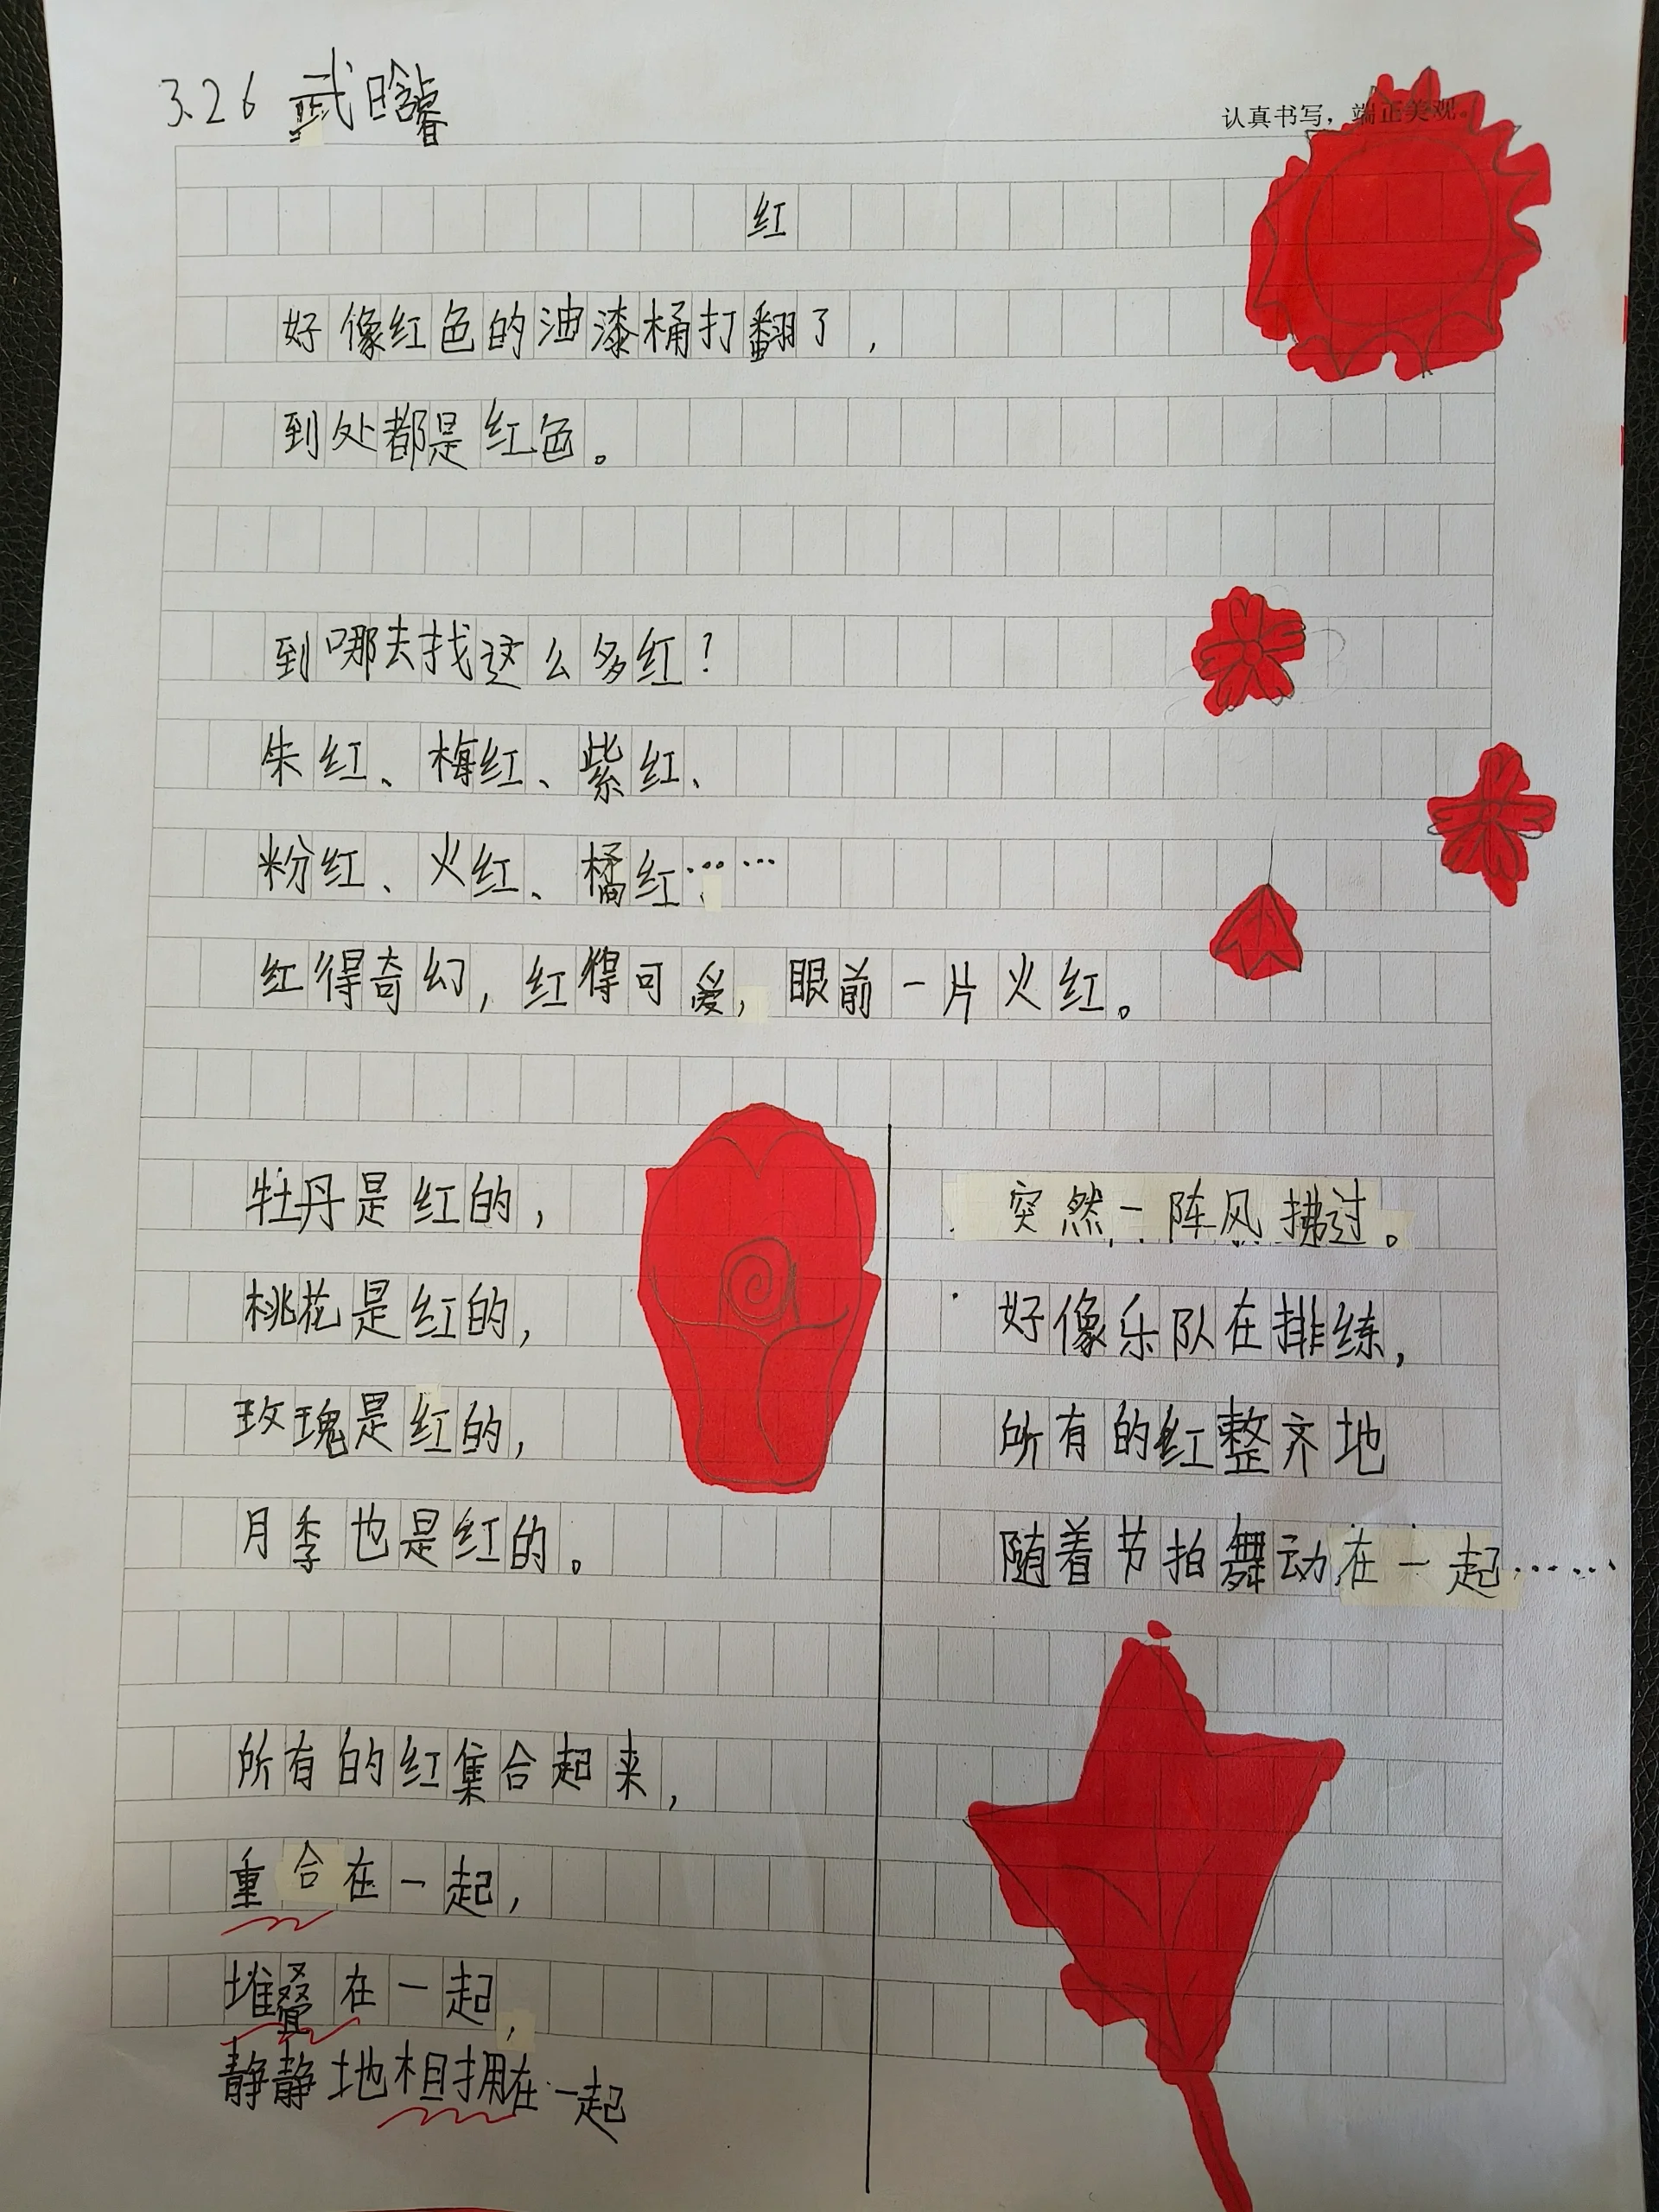 3.26 武晗睿
认真书写，端正美观。
红
好像红色的油漆桶打翻了，
到处都是红色。
到哪去找这么多红？
朱红、梅红、紫红、
粉红、火红、橘红……
红得奇幻，红得可爱，眼前一片火红。
牡丹是红的，
桃花是红的，
玫瑰是红的，
月季也是红的。
所有的红集合起来，
重合在一起，
堆叠在一起，
静静地相拥在一起
突然一阵风拂过。
好像乐队在排练，
所有的红整齐地
随着节拍舞动在一起……